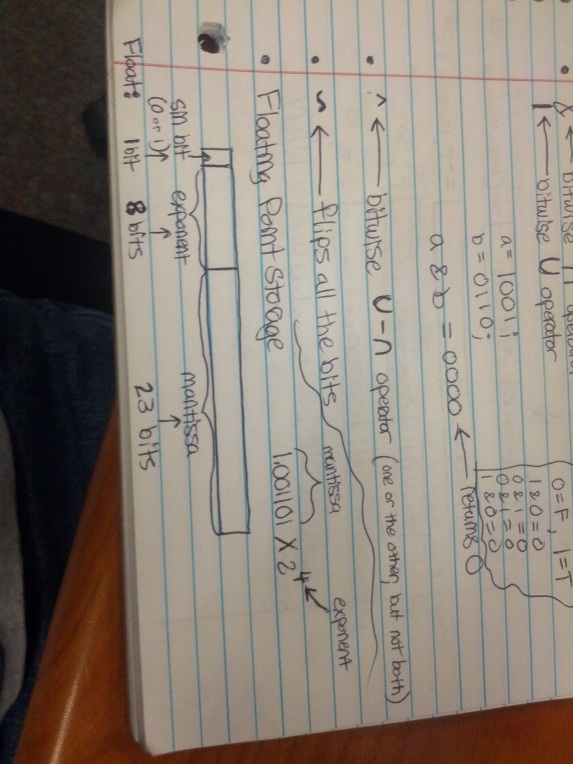 • & ← bitwise ∩ operator
| ← bitwise U operator
a = 1001;
b = 0110;
a & b = 0000 ← returns 0
0=F, 1=T
1&0=0
0&1=0
0&1=0
1&0=0
• ^ ← bitwise U-∩ operator (one or the other, but not both)
• ~ ← flips all the bits
• Floating Point Storage
mantissa
exponent
1.001101 X 2^4
sin bit
(0 or 1)
exponent
mantissa
Float: 1 bit 8 bits 23 bits